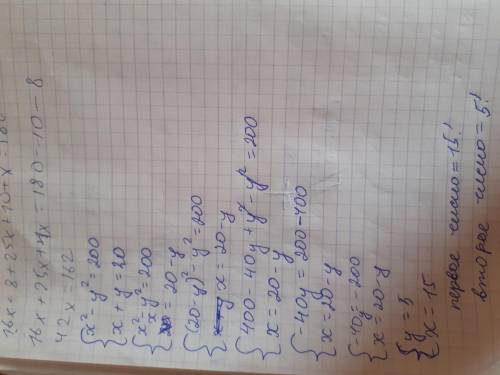 16x = 8 + 25x + 10 + x = 180
16x + 25x + x = 180 - 10 - 8
42x = 162
{x² - y² = 200
{x + y = 20
{x² - y² = 200
{x = 20 - y
{(20-y)² - y² = 200
{x = 20 - y
{400 - 40y + y² - y² = 200
{x = 20 - y
{-40y = 200 - 400
{x = 20 - y
{-40y = -200
{x = 20 - y
{y = 5
{x = 15
первое число = 15!
второе число = 5!